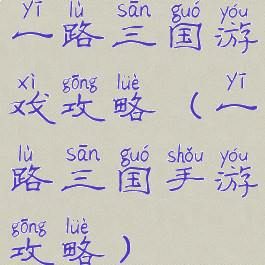 yī lù sān guó yóu
一路三国游
xì gōng lüè yī
戏攻略（一
lù sān guó shǒu yóu
路三国手游
gōng lüè
攻略）